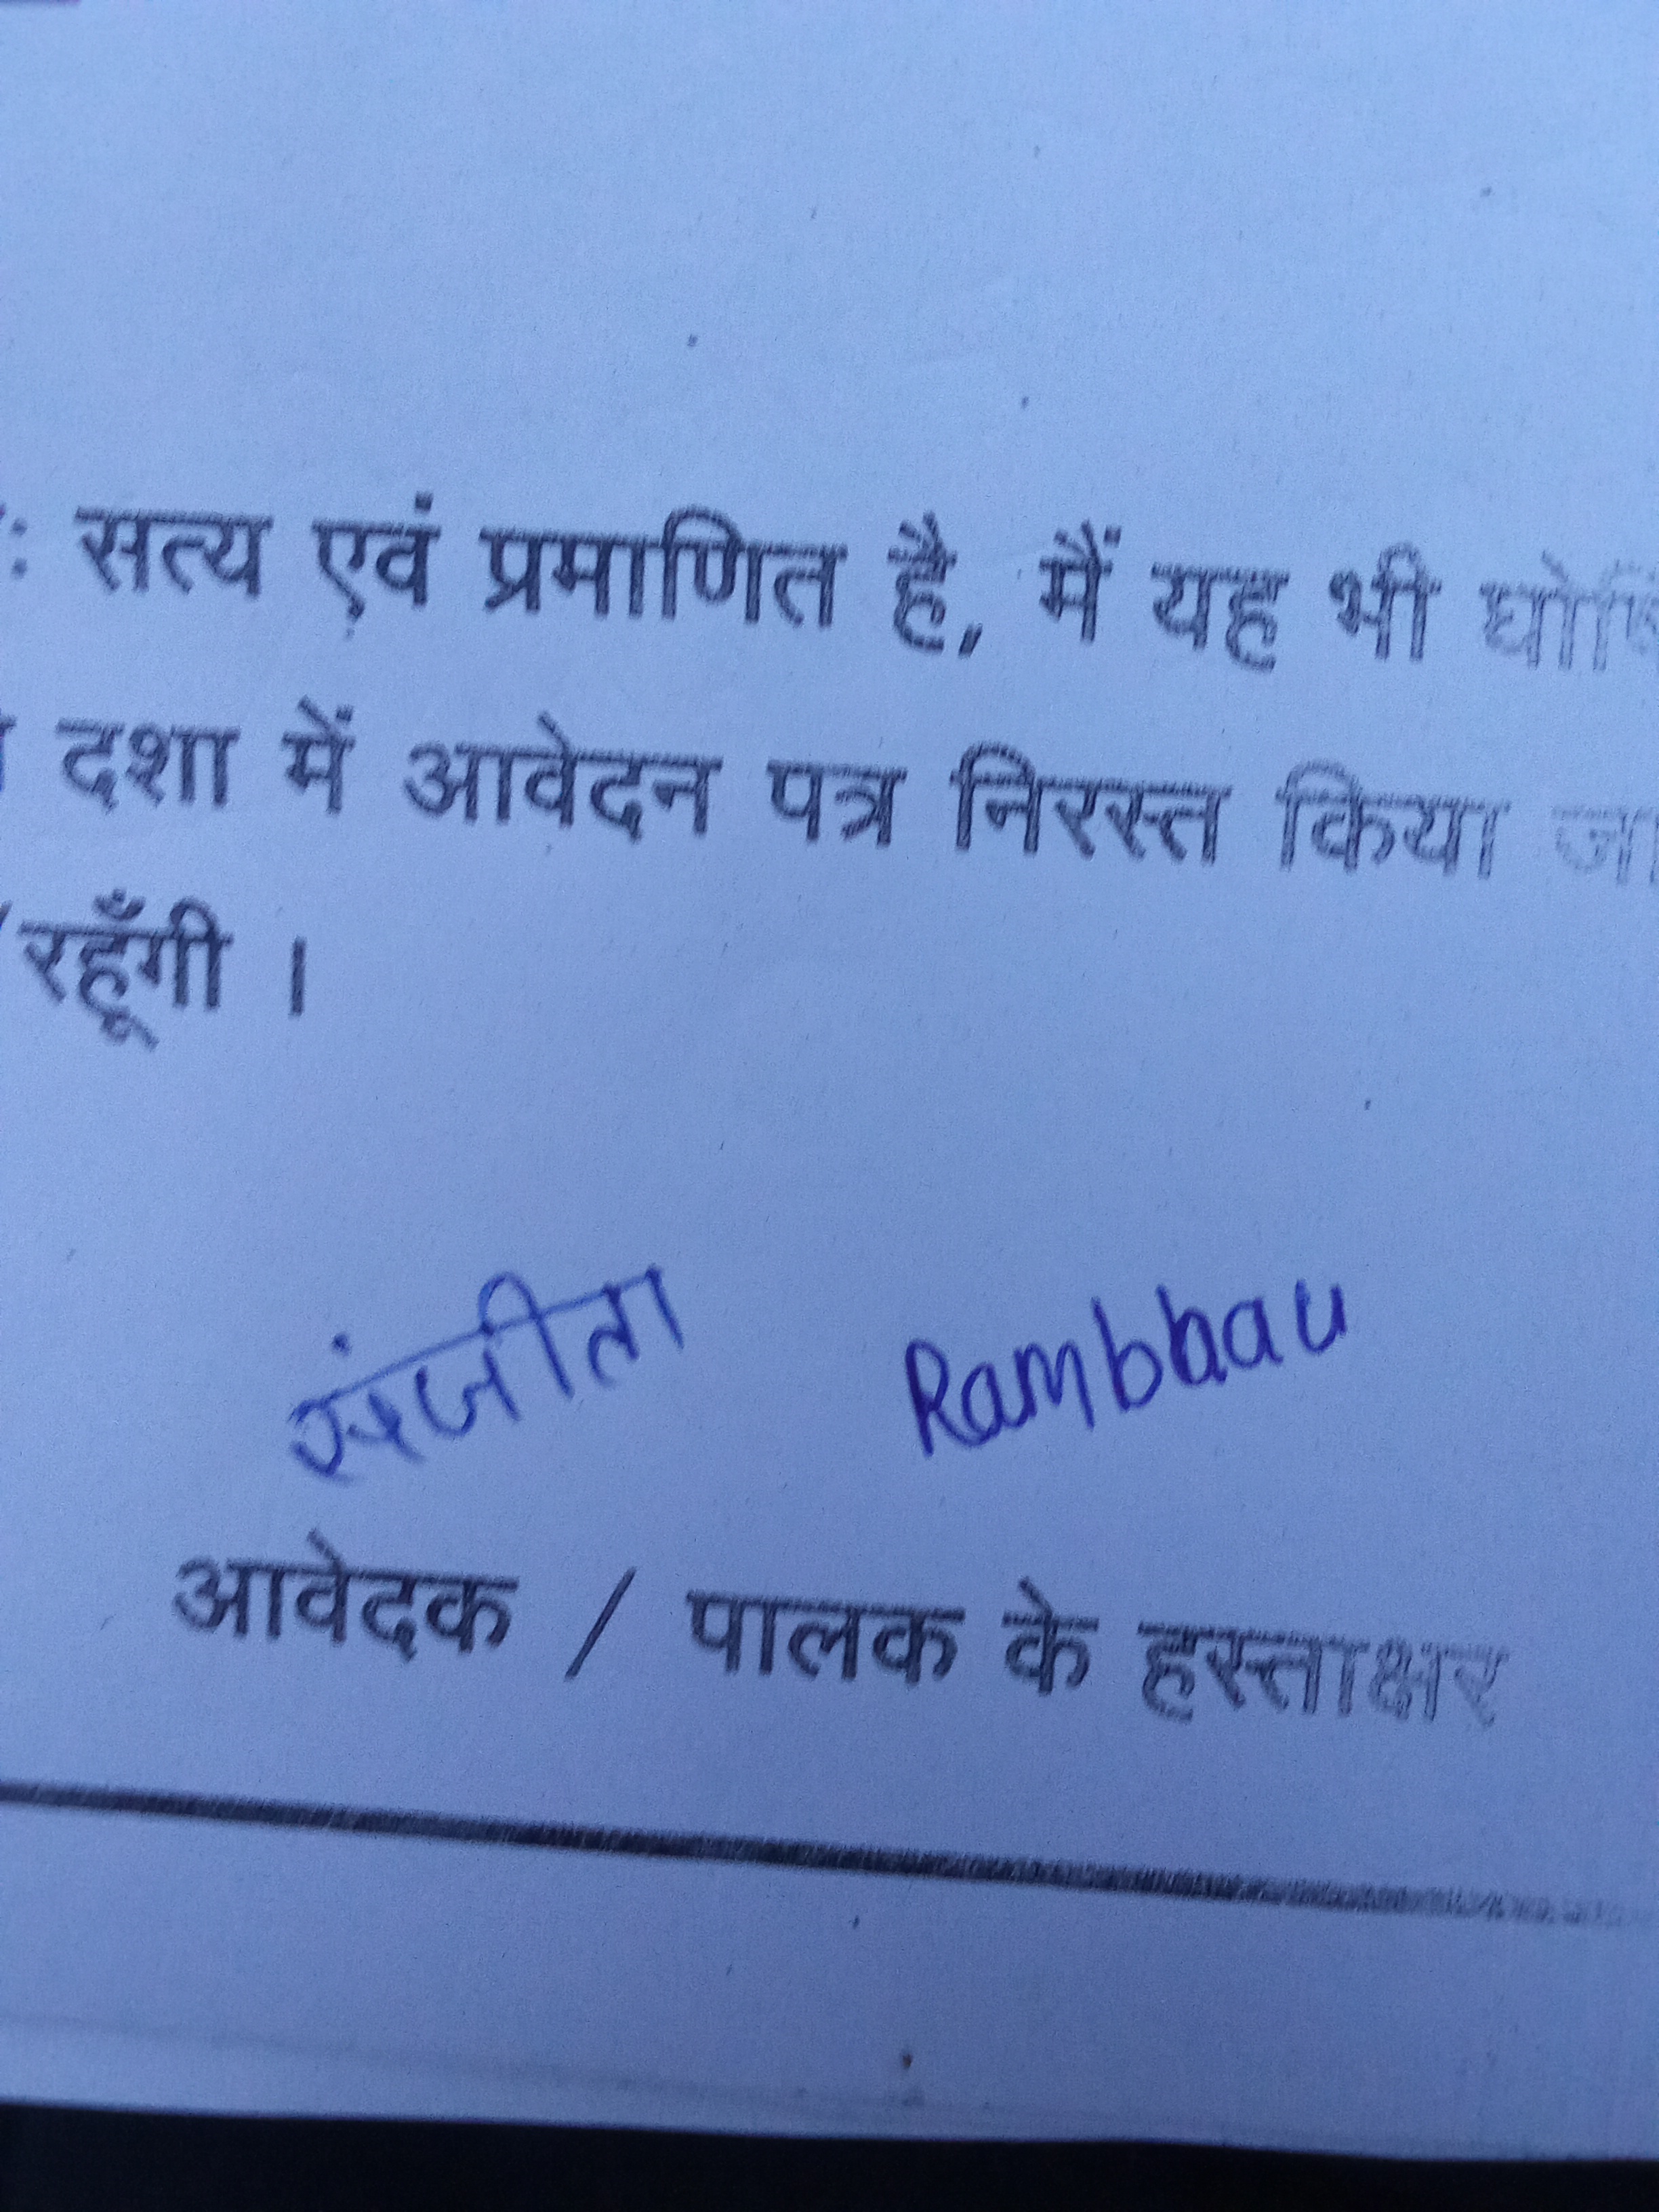 : सत्य एवं प्रमाणित है, मैं यह भी
दशा में आवेदन पत्र निरस्त किया
रहूँगी ।
संजीता Rambhau
आवेदक / पालक के हस्ताक्षर